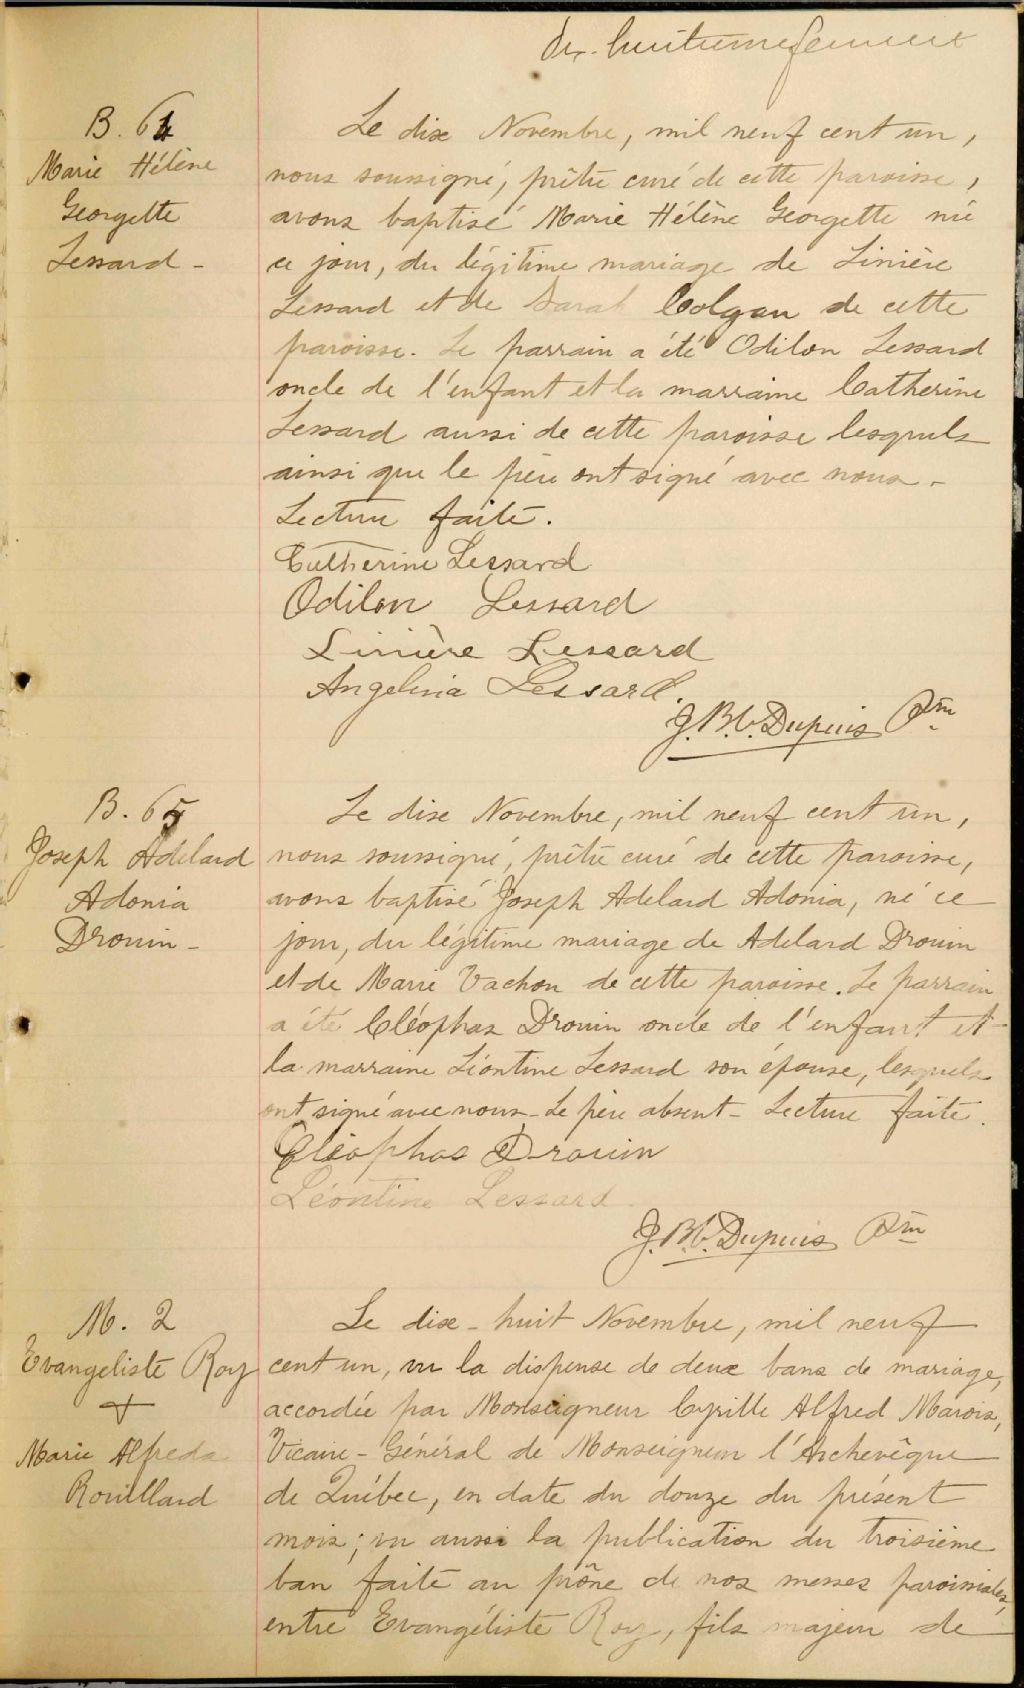 dix-huitième feuillet
B. 64
Marie Hélène
Georgette
Lessard -
Le dix Novembre, mil neuf cent un,
nous soussigné, prêtre curé de cette paroisse,
avons baptisé Marie Hélène Georgette née
ce jour, du légitime mariage de Linière
Lessard et de Sarah Colgan de cette
paroisse. Le parrain a été Odilon Lessard
oncle de l'enfant et la marraine Catherine
Lessard aussi de cette paroisse lesquels
ainsi que le père ont signé avec nous -
Lecture faite.
Catherine Lessard
Odilon Lessard
Linière Lessard
Angelina Lessard.
J. B. C. Dupuis Ptre
B. 65
Joseph Adélard
Adonia
Drouin -
Le dix Novembre, mil neuf cent un,
nous soussigné, prêtre curé de cette paroisse,
avons baptisé Joseph Adelard Adonia, né ce
jour, du légitime mariage de Adelard Drouin
et de Marie Vachon de cette paroisse. Le parrain
a été Cléophas Drouin oncle de l'enfant et
la marraine Léontine Lessard son épouse, lesquels
ont signé avec nous - Le père absent - Lecture faite.
Cléophas Drouin
Léontine Lessard
J. B. C. Dupuis Ptre
M. 2
Evangeliste Roy
+
Marie Alfreda
Rouillard
Le dix-huit Novembre, mil neuf
cent un, vu la dispense de deux bans de mariage,
accordée par Monseigneur Cyrille Alfred Marois,
Vicaire-Général de Monseigneur l'Archevêque
de Québec, en date du douze du présent
mois; vu aussi la publication du troisième
ban faite au prône de nos messes paroissiales,
entre Evangéliste Roy, fils majeur de